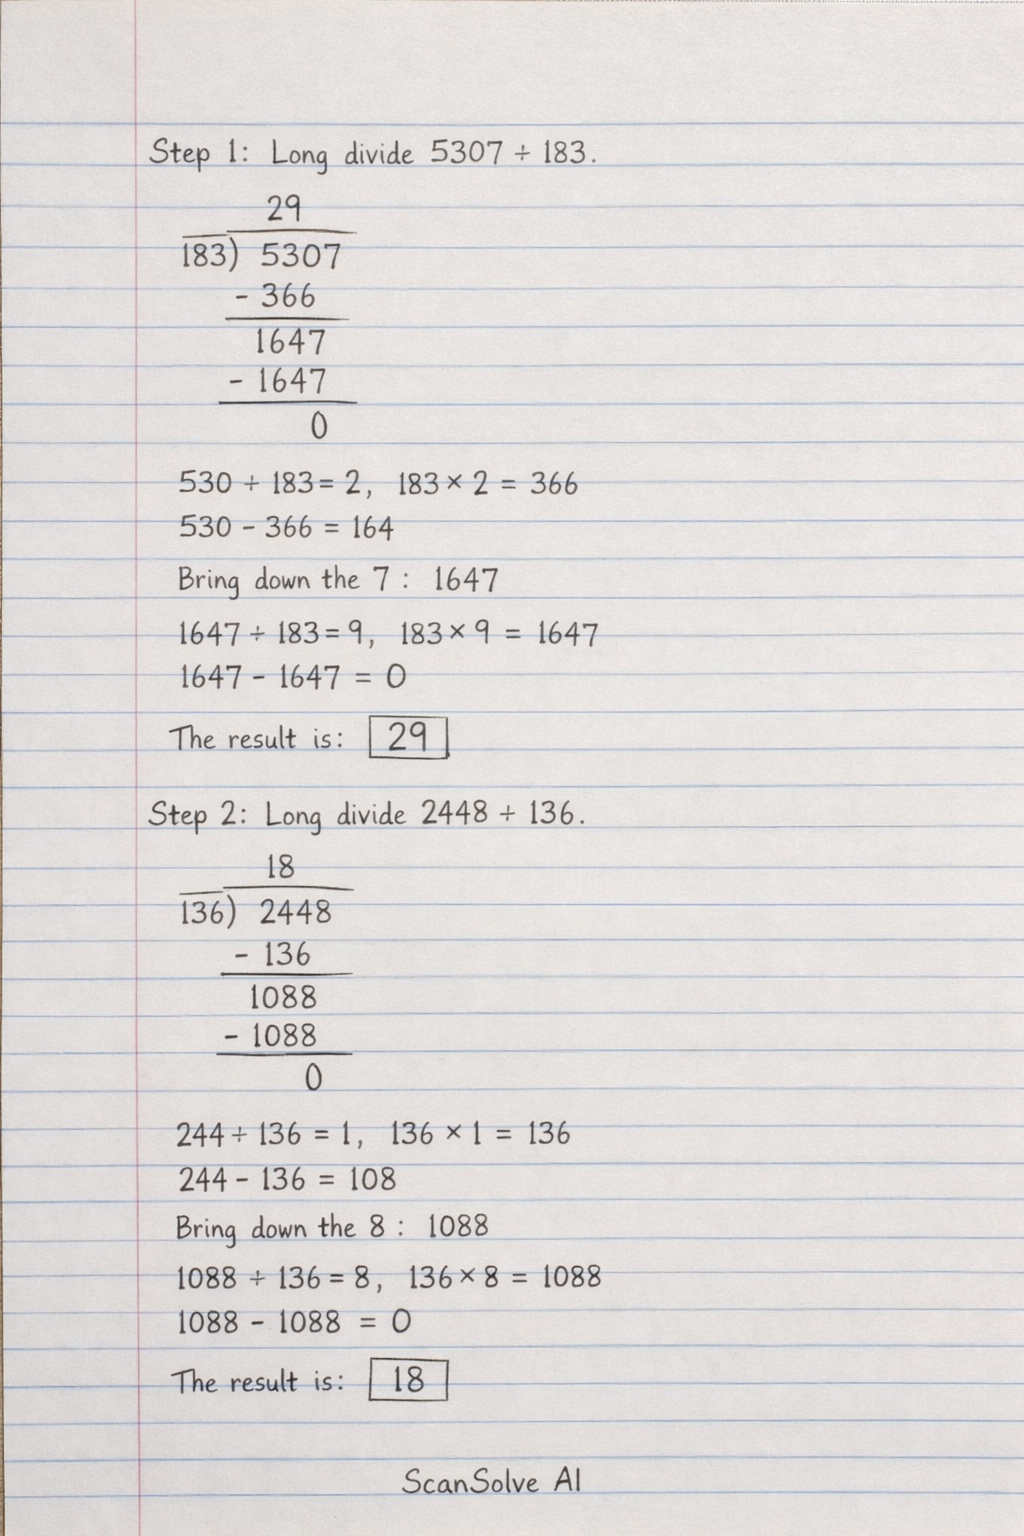 Step 1: Long divide 5307 ÷ 183.
29
183) 5307
- 366
1647
- 1647
0
530 ÷ 183 = 2, 183 × 2 = 366
530 - 366 = 164
Bring down the 7 : 1647
1647 ÷ 183 = 9, 183 × 9 = 1647
1647 - 1647 = 0
The result is: 29
Step 2: Long divide 2448 ÷ 136.
18
136) 2448
- 136
1088
- 1088
0
244 ÷ 136 = 1, 136 × 1 = 136
244 - 136 = 108
Bring down the 8 : 1088
1088 ÷ 136 = 8, 136 × 8 = 1088
1088 - 1088 = 0
The result is: 18
ScanSolve AI